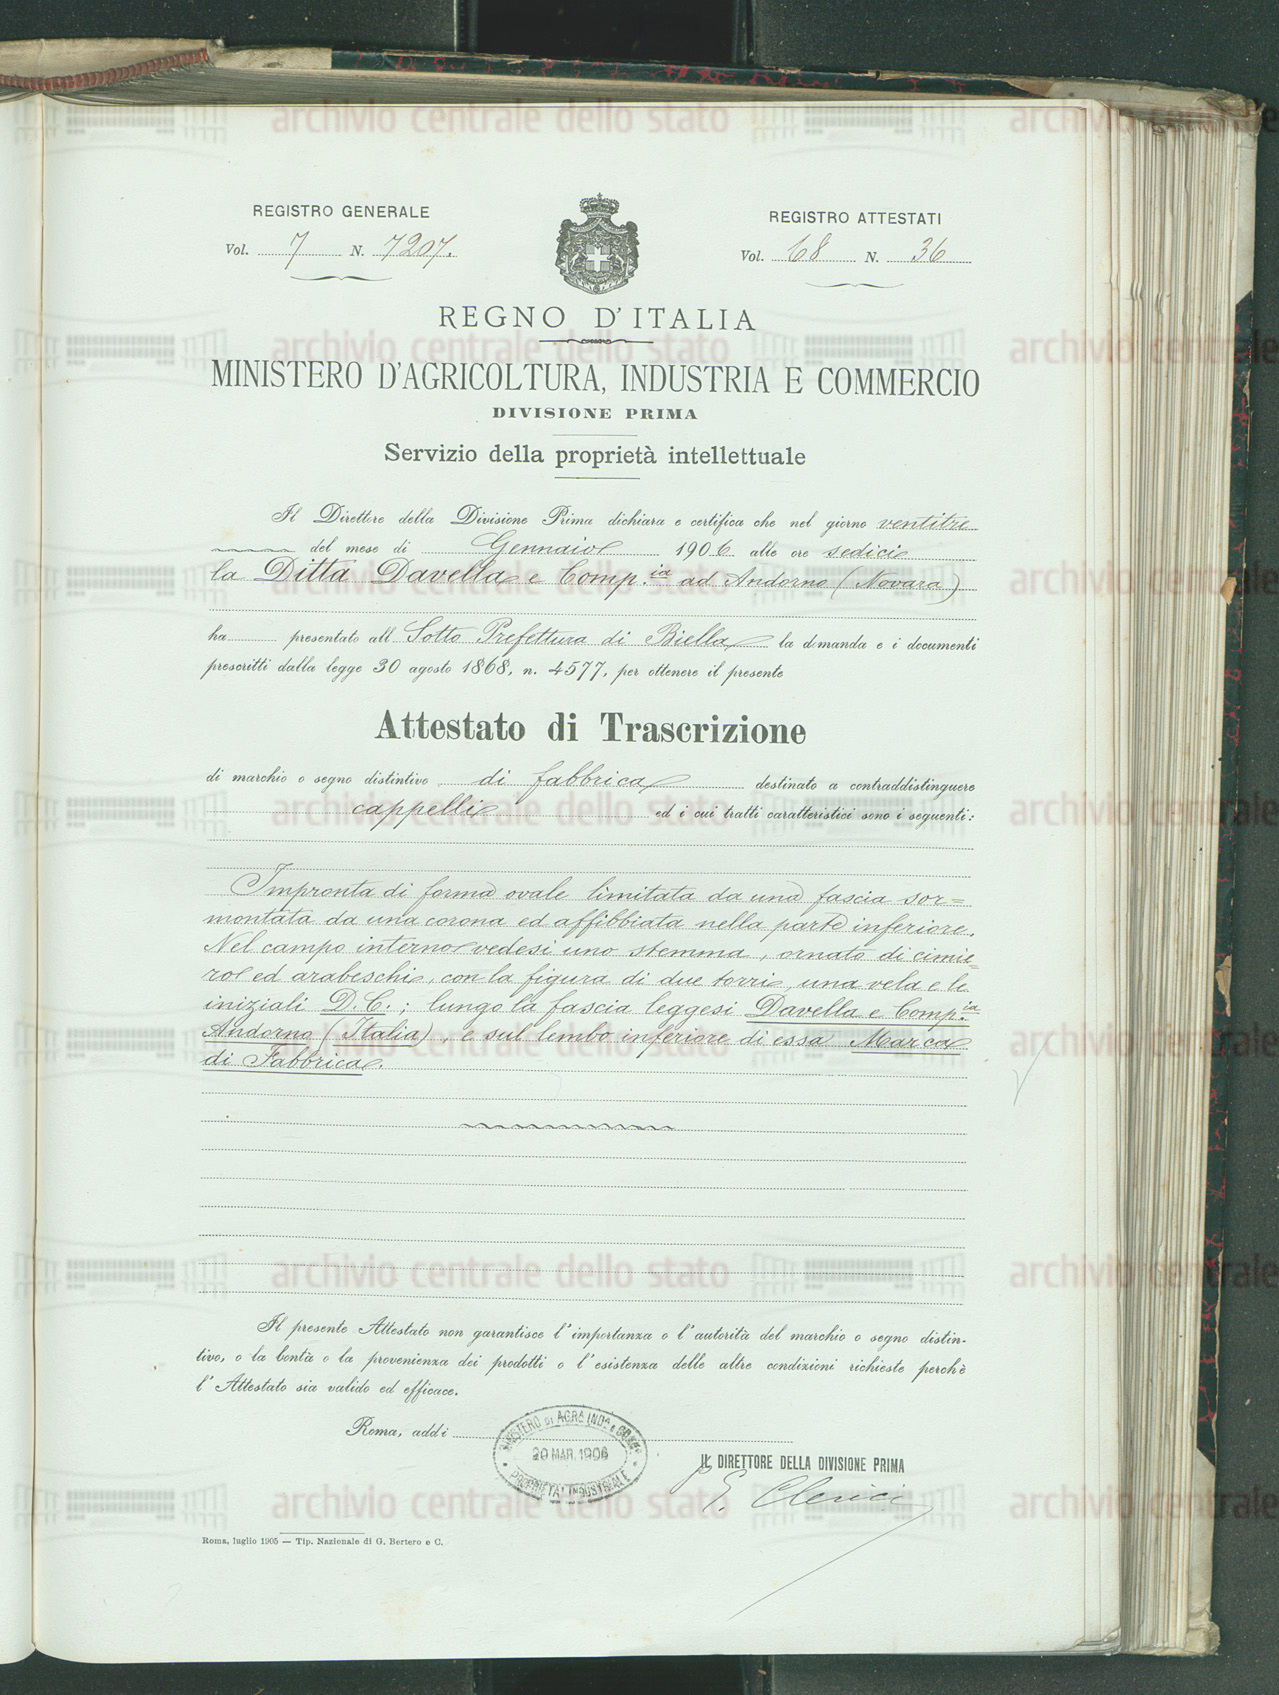 REGISTRO GENERALE
Vol. 7 N. 7207.
REGISTRO ATTESTATI
Vol. 68 N. 36
REGNO D'ITALIA
MINISTERO D'AGRICOLTURA, INDUSTRIA E COMMERCIO
DIVISIONE PRIMA
Servizio della proprietà intellettuale
Il Direttore della Divisione Prima dichiara e certifica che nel giorno ventitre
del mese di Gennaio 1906 alle ore sedici
la Ditta Davella e Comp.ia ad Andorno (Novara)
ha presentato all Sotto Prefettura di Biella la domanda e i documenti
prescritti dalla legge 30 agosto 1868, n. 4577, per ottenere il presente
Attestato di Trascrizione
di marchio o segno distintivo di fabbrica destinato a contraddistinguere
cappelli ed i cui tratti caratteristici sono i seguenti:
Impronta di forma ovale limitata da una fascia sor=
montata da una corona ed affibbiata nella parte inferiore.
Nel campo interno vedesi uno stemma, ornato di cimie=
ro ed arabeschi, con la figura di due torri, una vela e le
iniziali D.C.; lungo la fascia leggesi Davella e Comp.ia
Andorno (Italia), e sul lembo inferiore di essa Marca
di Fabbrica.
Il presente Attestato non garantisce l'importanza o l'autorità del marchio o segno distin-
tivo, o la bontà o la provenienza dei prodotti o l'esistenza delle altre condizioni richieste perchè
l'Attestato sia valido ed efficace.
Roma, addì
MINISTERO DI AGRA INDA E COMMO
20 MAR. 1906
PROPRIETA' INDUSTRIALE
IL DIRETTORE DELLA DIVISIONE PRIMA
G. Clerici
Roma, luglio 1905 — Tip. Nazionale di G. Bertero e C.
archivio centrale dello stato